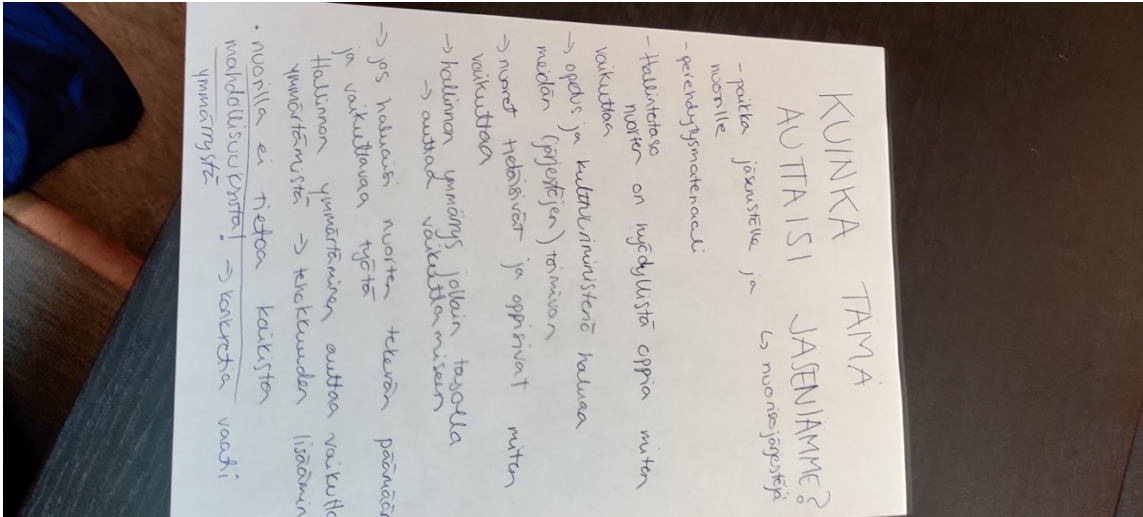 KUINKA TÄMÄ
AUTTAISI JÄSENIÄMME?
↳ nuorisojärjestöjä
- paikka jäsenistölle ja
nuorille
- perehdytysmateriaali
- Hallintotaso
nuorten on hyödyllistä oppia miten
vaikuttaa
→ opetus ja kulttuuriministeriö haluaa
meidän (järjestöjen) toimivan
→ nuoret tietäisivät ja oppisivat miten
vaikuttaa
→ hallinnon ymmärrys jollain tasolla
→ auttaa vaikuttamiseen
→ jos haluaisi nuorten tekevän päämäär
ja vaikuttavaa työtä
Hallinnon ymmärtäminen auttaa vaikutta
ymmärtämistä → tehokkuuden lisäämin
• nuorilla ei tietoa kaikista
mahdollisuuksista! → konkretia vaatii
ymmärrystä